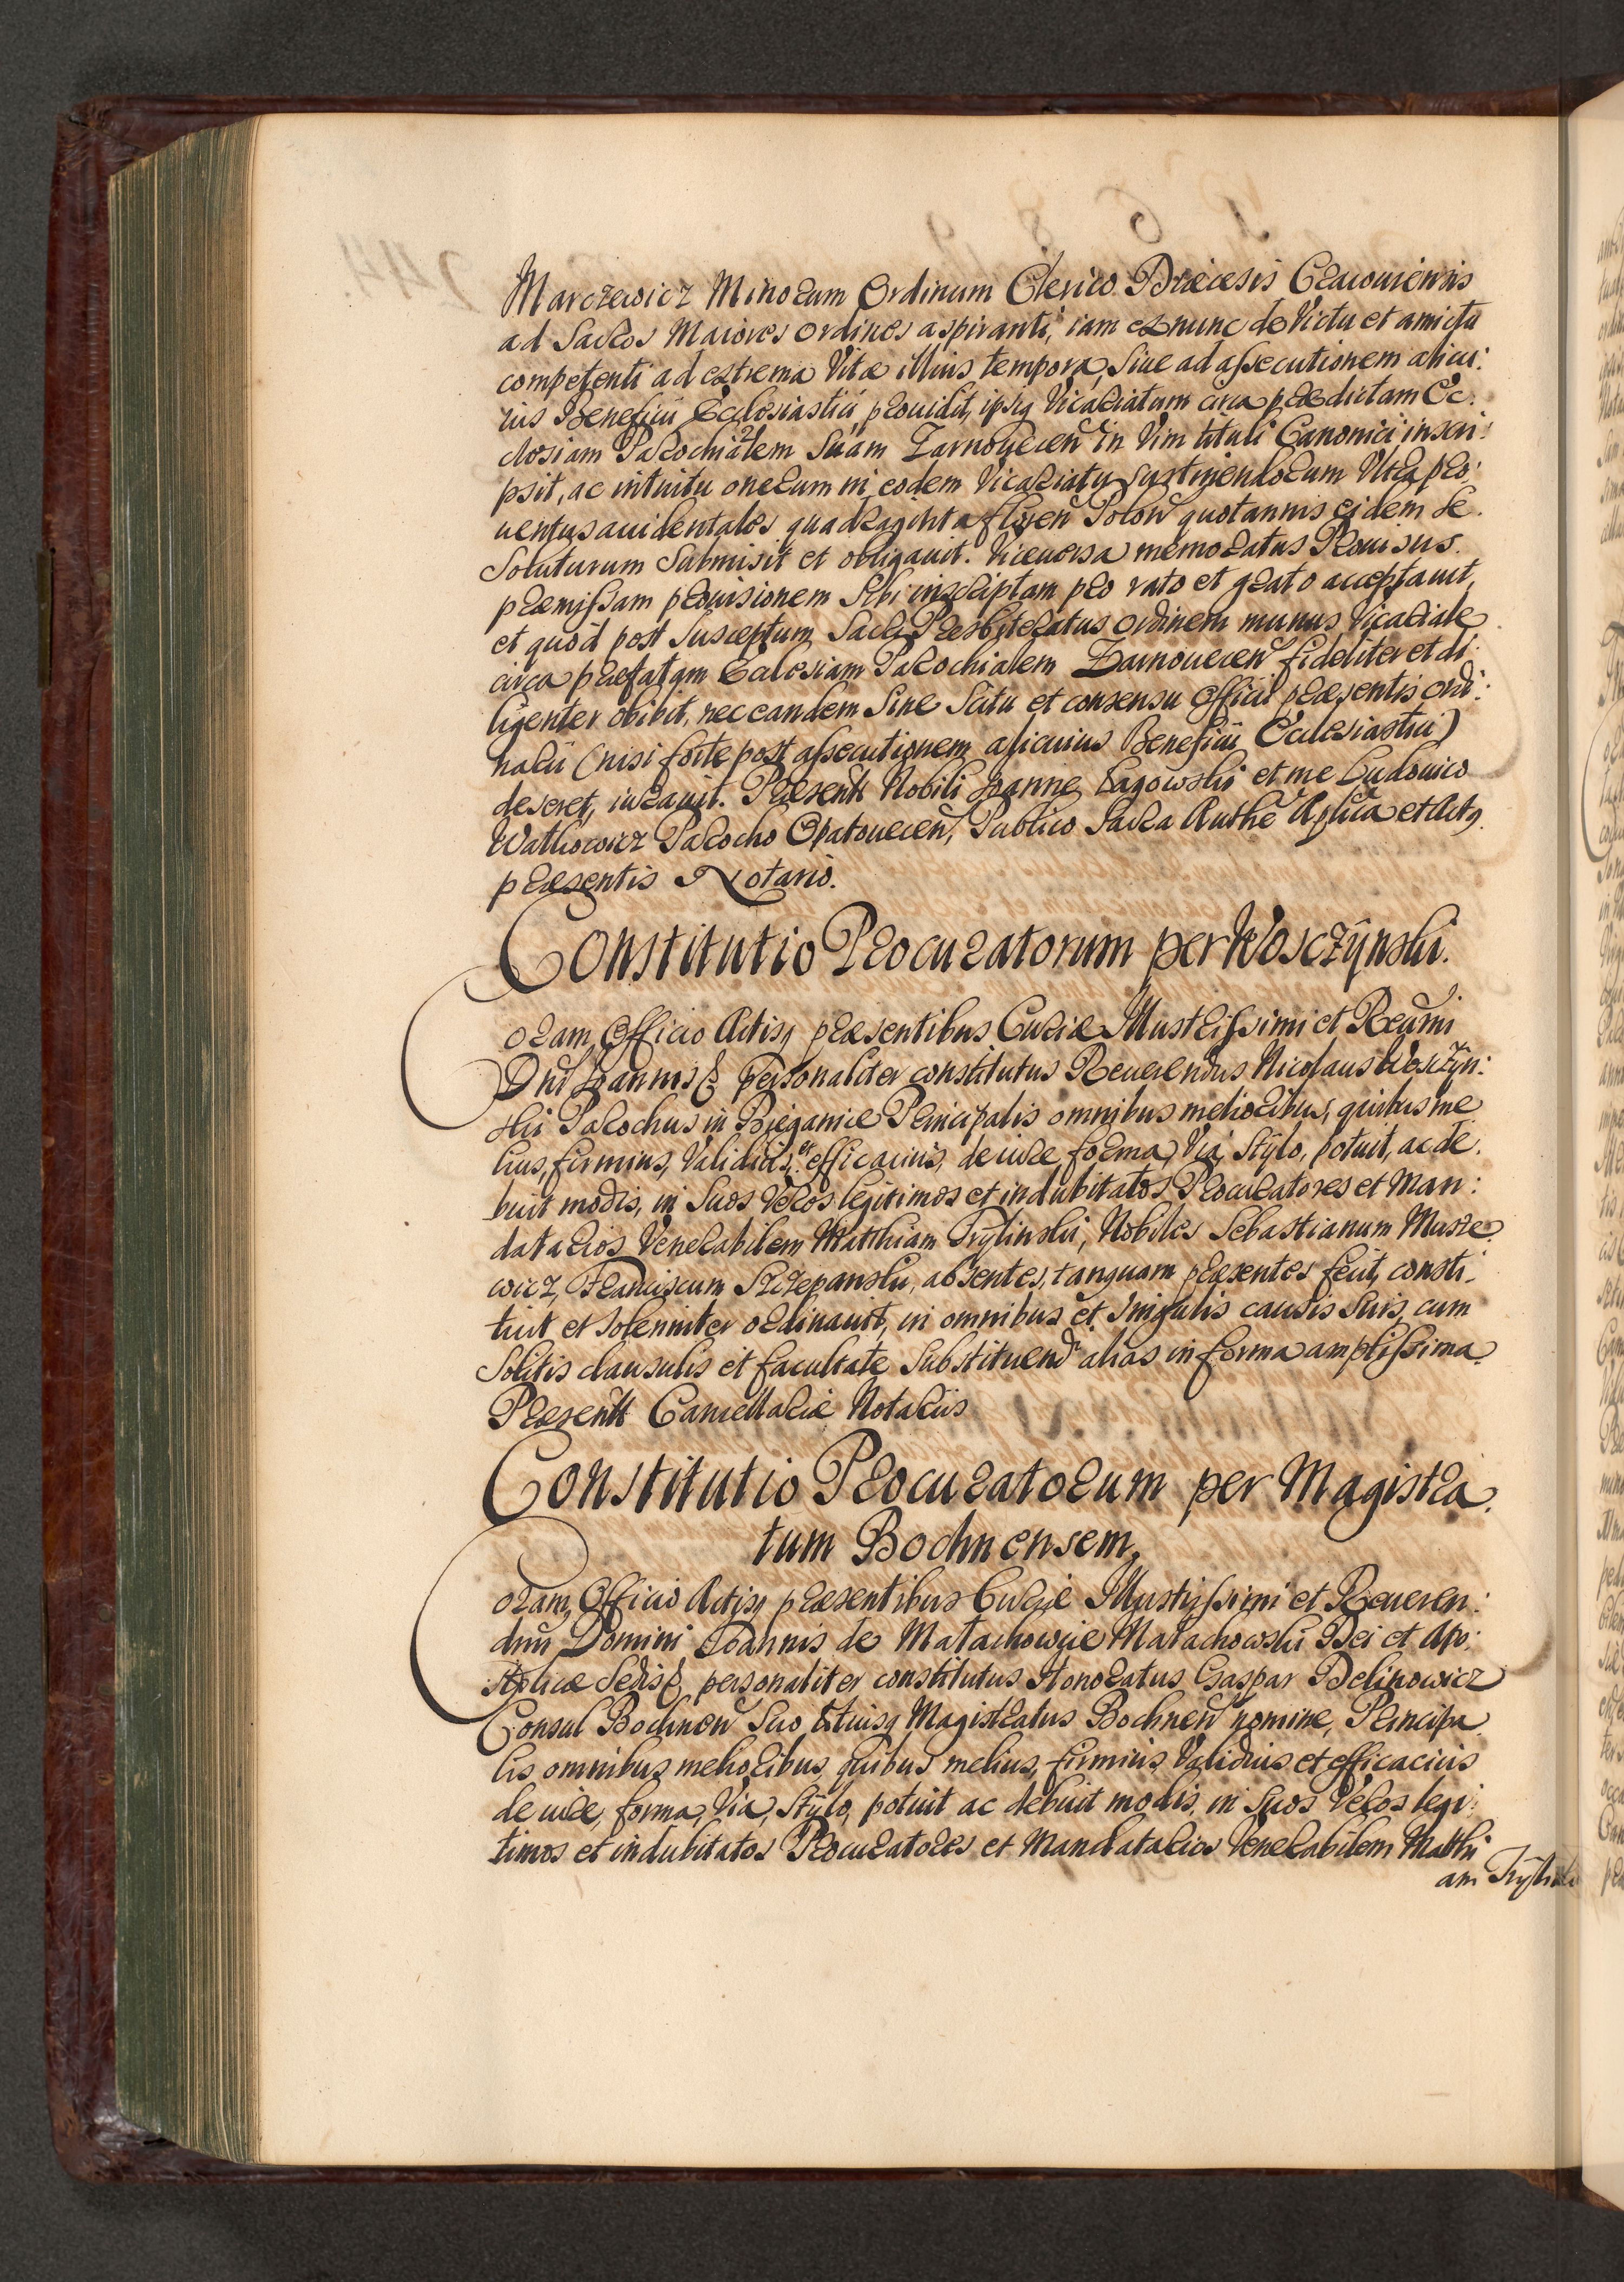 Marczewicz Minorum Ordinum Clerico Diæcesis Cracouiensis
ad Sacros Maiores ordines aspiranti, iam ex nunc de Victu et amictu
competenti ad extrema Vitæ illius tempora, siue ad assecutionem alicu:
ius Beneficii Ecclesiastici prouidit, ipsiq Vicariatum circa prædictam Ec:
clesiam Parochialem Suam Zarnovecen in Vim tituli Canonici inscri:
psit, ac intuitu onerum in eodem Vicariatu sustinendorum Vltra pro:
uentus accidentales quadraginta floren Polon quotannis eidem se
soluturum submisit et obligauit. Viceuersa memoratus Prouisus
præmissam prouisionem Sibi inscriptam pro rato et grato acceptauit,
et quod post susceptum Sacri Præsbiteratus ordinem munus Vicariale
circa præfatam Ecclesiam Parochialem Zarnouecen fideliter et di:
ligenter obibit, nec eandem sine Scitu et consensu Officii præsentis ordi:
narii (nisi forte post assecutionem alicuius Beneficii Ecclesiastici)
deseret, iurauit. Præsentt Nobili Joanne Łagowski et me Ludouico
Watkowicz Parocho Opatouecen, Publico Sacra Authe Aplica et Actq
præsentis Notario.
Constitutio Procuratorum per Wosczÿnski.
Coram Officio Actisq præsentibus Curiæ Illustrissimi et Reurmi
Dni Joannis & personaliter constitutus Reuerendus Nicolaus Wosczÿn:
ski Parochus in Bieganice Principalis omnibus melioribus, quibus me
lius, firmius, Validius, et efficacius, de iure, forma, Via, Stÿlo, potuit, ac de
buit modis, in Suos Veros legitimos et indubitatos Procuratores et Man:
datarios Venerabilem Matthiam Trylinski, Nobiles Sebastianum Musze
wicz, Franciscum Szczepanski, absentes, tanquam præsentes fecit, consti
tuit et solenniter ordinauit, in omnibus et singulis causis suis, cum
Solitis clausulis et facultate Substituend alias in forma amplissima
Præsentt Cancellariæ Notariis
Constitutio Procuratorum per Magistra
tum Bochnensem.
Coram Officio Actisq præsentibus Curiæ Illustrissimi et Reueren:
dmi Domini Joannis de Małachowice Małachowski Dei et Apo:
stolicæ Sedis & personaliter constitutus Honoratus Gaspar Delinowicz
Consul Bochnen Suo totiusq Magistratus Bochnen nomine, Principa
lis omnibus melioribus, quibus melius, firmius, Validius et efficacius
de iure, forma, Via, Stÿlo, potuit ac debuit modis, in Suos Veros legi:
timos et indubitatos Procuratores et Mandatarios Venerabilem Matthi
am